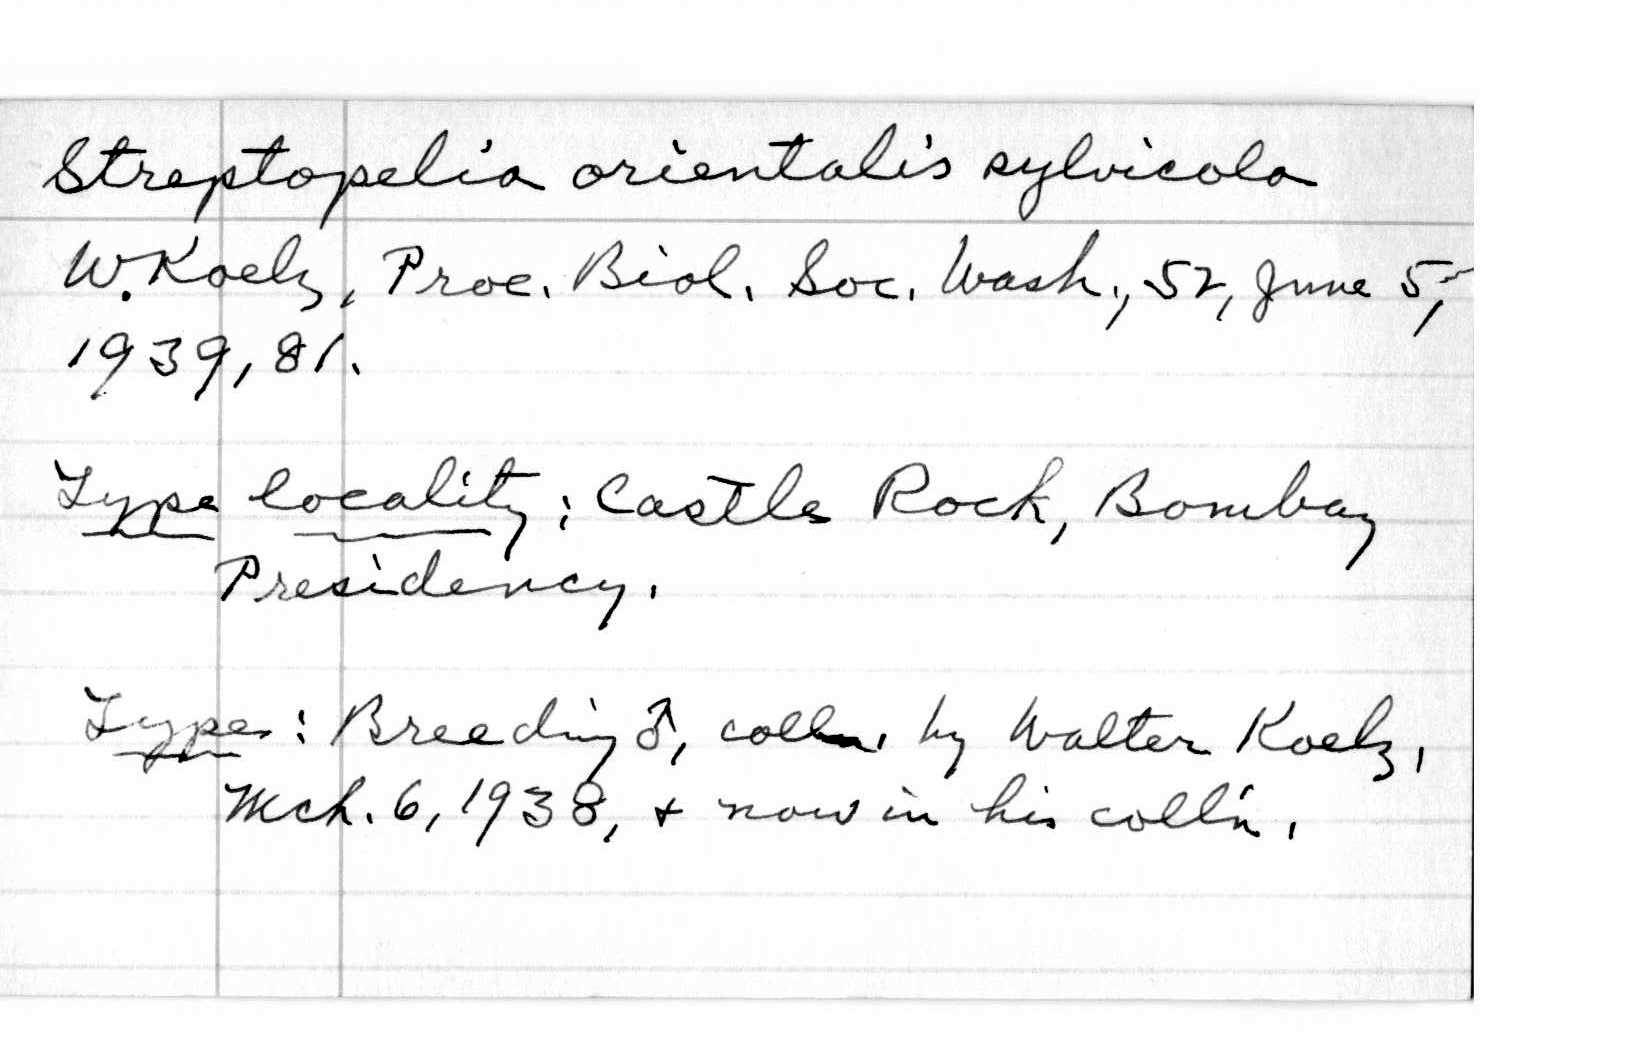 Streptopelia orientalis sylvicola
W. Koelz, Proc. Biol. Soc. Wash., 52, June 5,
1939, 81.
Type locality: Castle Rock, Bombay
Presidency.
Type: Breeding ♂, by Walter Koelz,
Mch. 6, 1938, + now in his coll'n.